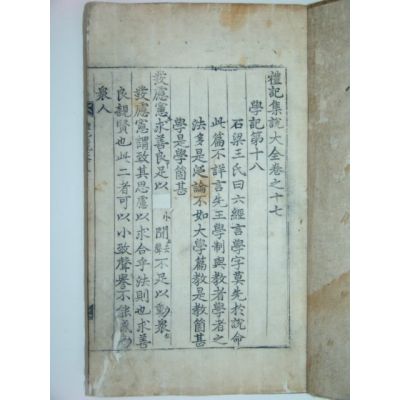 禮記集說大全卷之十七
學記第十八
石梁王氏曰六經言學字莫先於說命
此篇不詳言先王學制與教者學者之
法多是泛論不如大學篇教是教箇甚
學是學箇甚
發慮憲求善良足以小聞不足以動衆
發慮憲謂致其思慮以求合乎法則也求善
良親賢也此二者可以小致聲譽不能感動
衆人